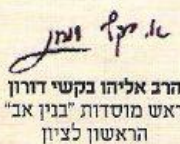 הרב אליהו בקשי דורון
ראש מוסדות "בנין אב"
הראשון לציון